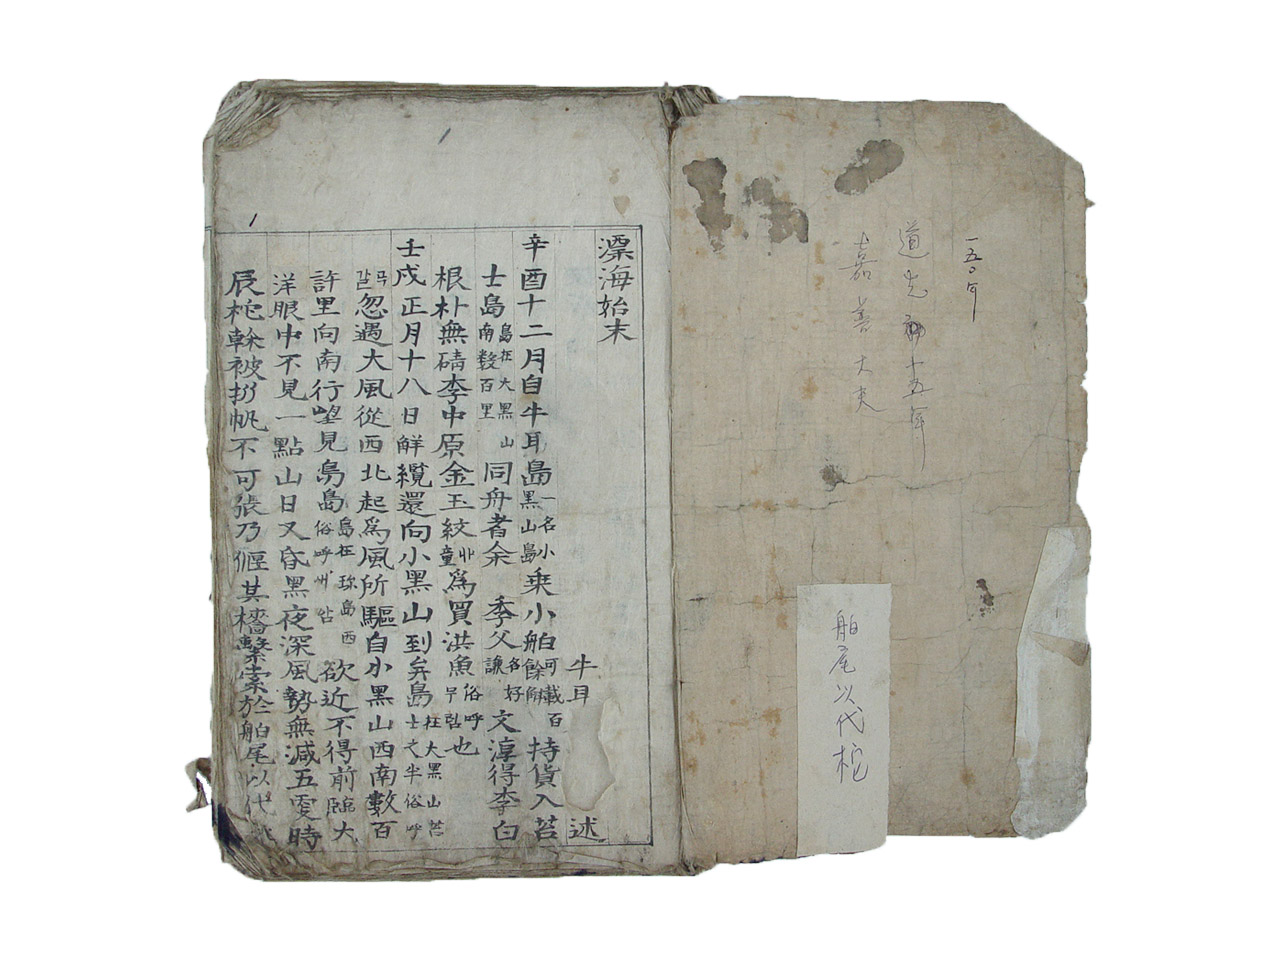 一五〇年
道光 十五年
嘉善大夫
舶尾以代柁
漂海始末
牛目 述
辛酉十二月自牛耳島一名小黑山島乘小舶可載百餘斛持貨入苔
士島島在大黑山南數百里同舟者余 季父名好謙文淳得李白
根朴無碃李中原金玉紋丱童爲買洪魚俗呼무럼也
壬戌正月十八日解纜還向小黑山到弁島在大黑山苔士之半俗呼
곡갈忽遇大風從西北起爲風所驅自小黑山西南數百
許里向南行望見島島島在珍島西俗呼 欲近不得前臨大
洋眼中不見一點山日又昏黑夜深風勢無減五更時
辰柁榦被折帆不可張乃偃其檣繫索於舶尾以代